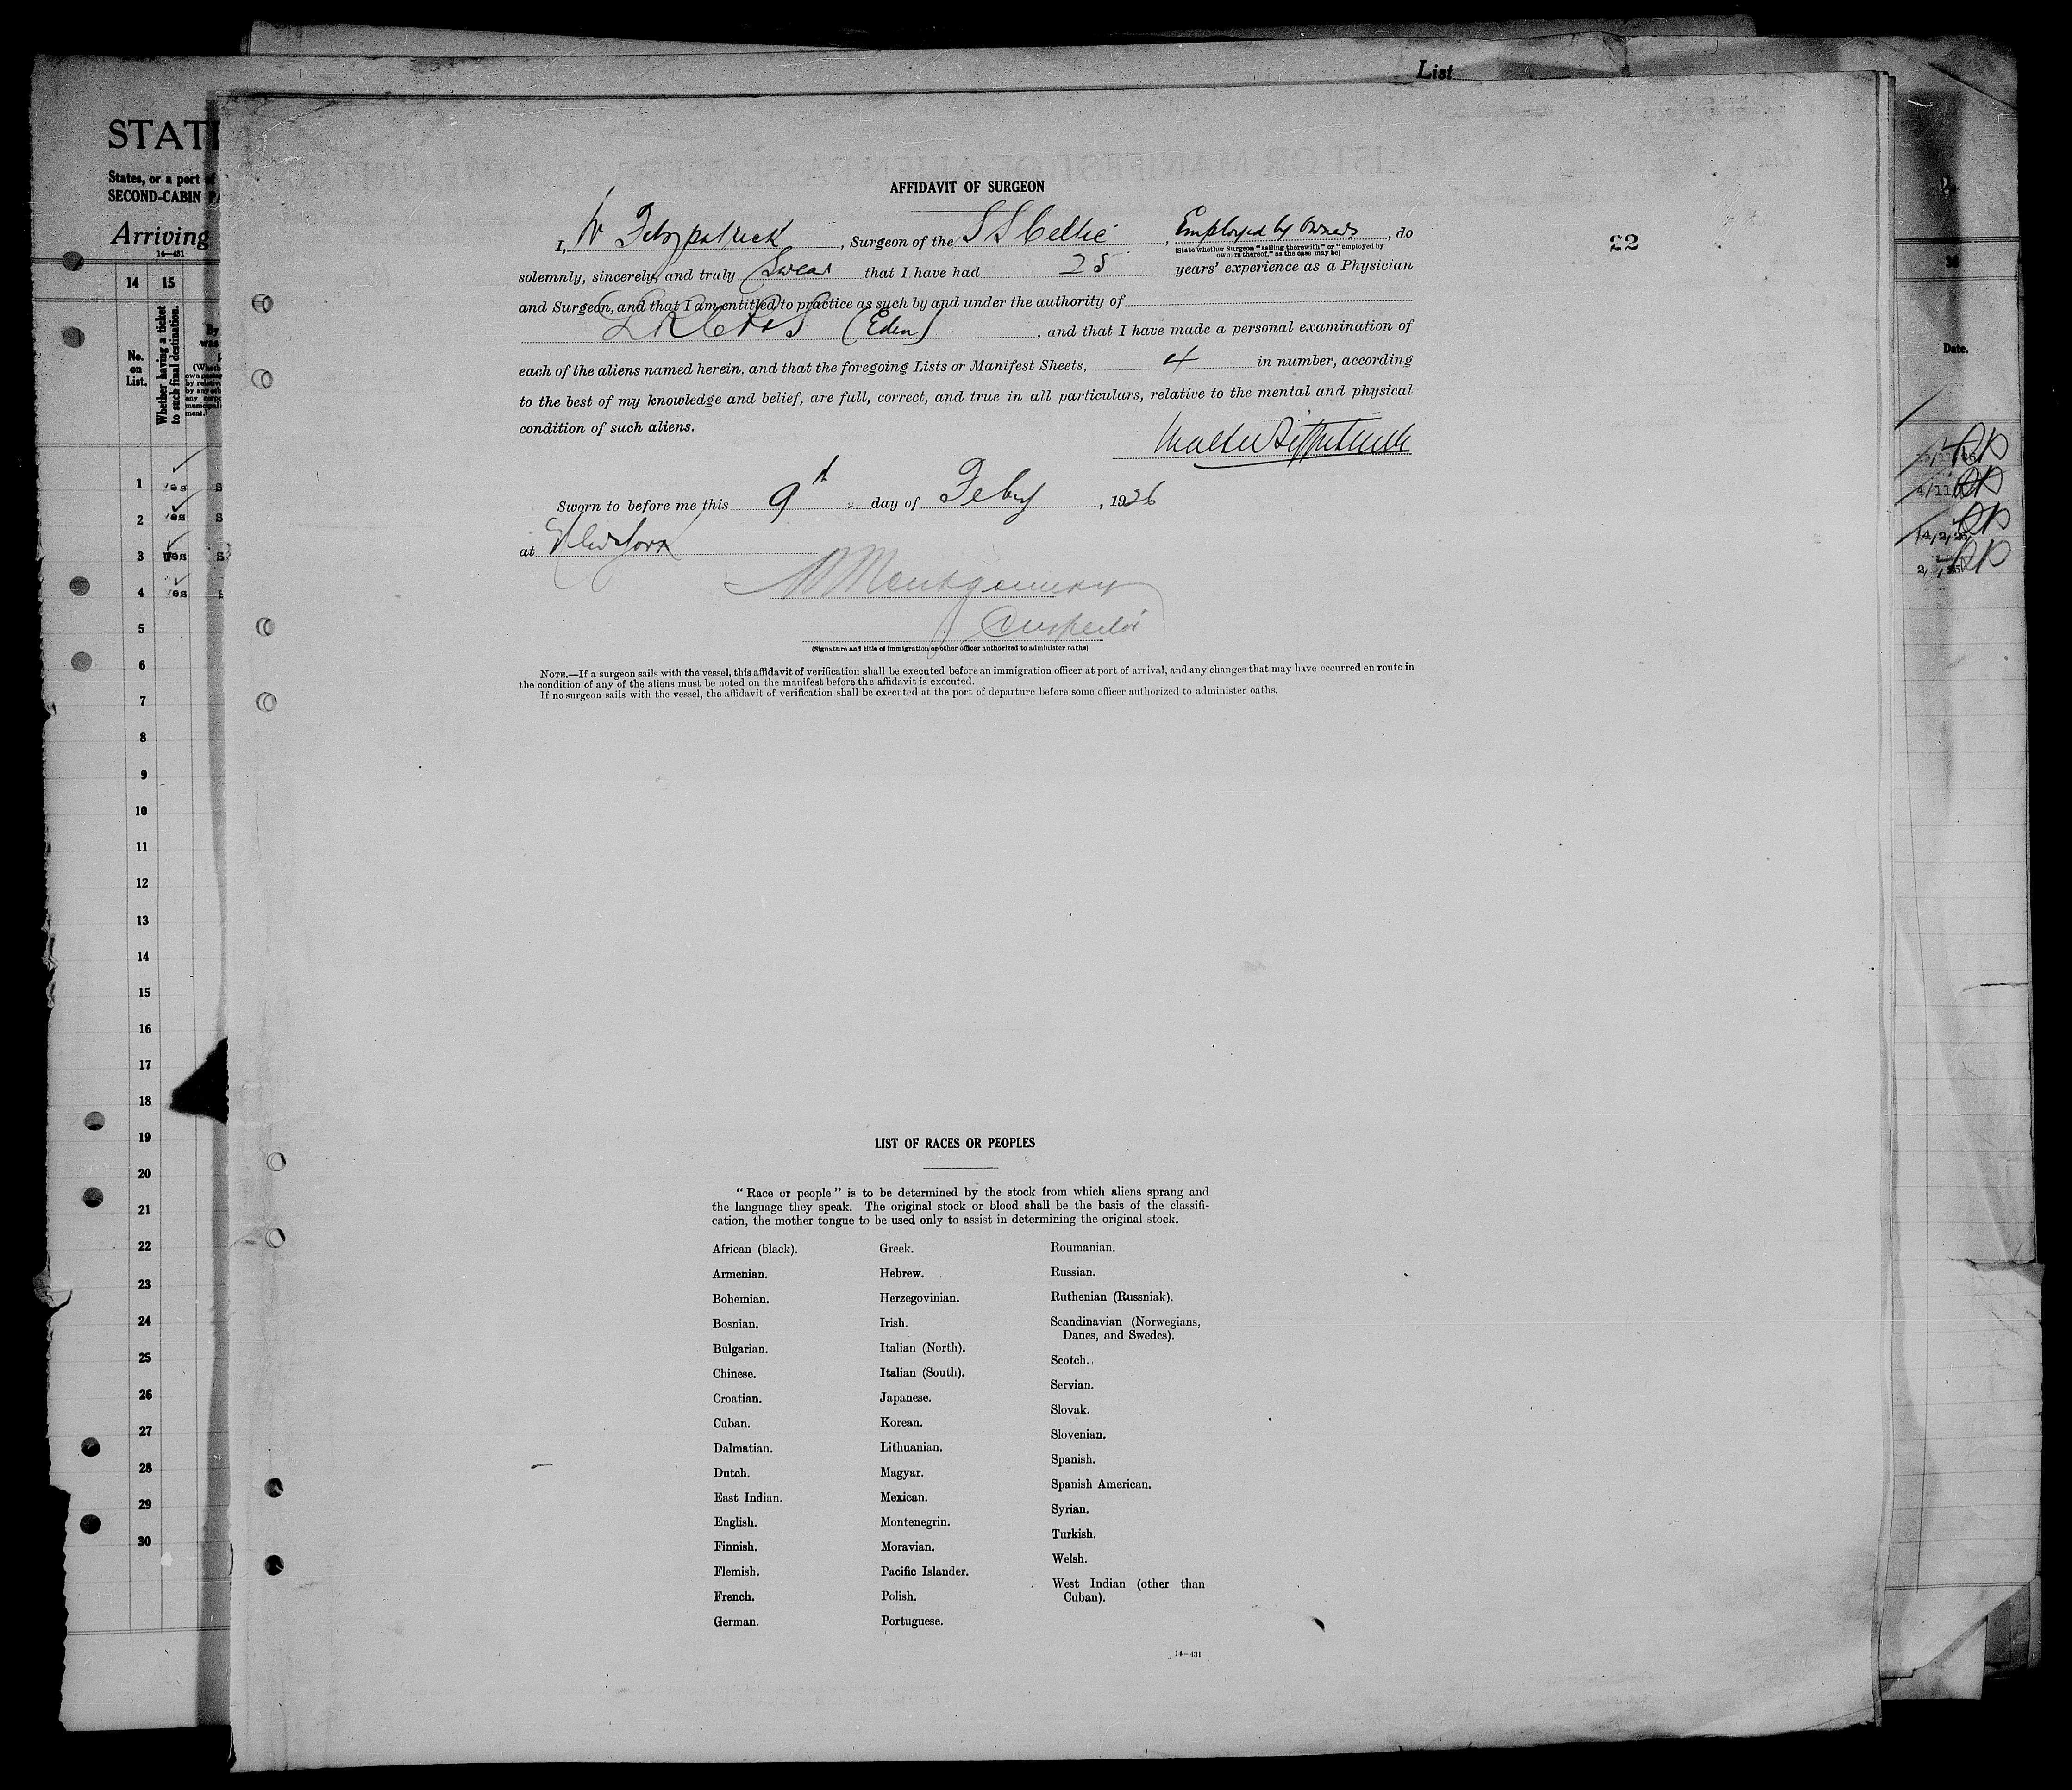 List
STATE
States, or a port of
SECOND-CABIN PA
Arriving
14—431
14 15
No. on List.
Whether having a ticket to such final destination.
By
was
Date.
1 Yes S
2 Yes S
3 Yes S
4 Yes S
5
6
7
8
9
10
11
12
13
14
15
16
17
18
19
20
21
22
23
24
25
26
27
28
29
30
22
AFFIDAVIT OF SURGEON
I, W Fitzpatrick, Surgeon of the SS Celtic, Employed by Owners, do
(State whether Surgeon "sailing therewith" or "employed by
owners thereof," as the case may be)
solemnly, sincerely, and truly Swear that I have had 25 years' experience as a Physician
and Surgeon, and that I am entitled to practice as such by and under the authority of
(Eden), and that I have made a personal examination of
each of the aliens named herein, and that the foregoing Lists or Manifest Sheets, 4 in number, according
to the best of my knowledge and belief, are full, correct, and true in all particulars, relative to the mental and physical
condition of such aliens.
Walter Fitzpatrick
Sworn to before me this 9th day of Feby, 1926
at New York
Montgomery
Inspector
(Signature and title of immigration or other officer authorized to administer oaths)
NOTE.—If a surgeon sails with the vessel, this affidavit of verification shall be executed before an immigration officer at port of arrival, and any changes that may have occurred en route in
the condition of any of the aliens must be noted on the manifest before the affidavit is executed.
If no surgeon sails with the vessel, the affidavit of verification shall be executed at the port of departure before some officer authorized to administer oaths.
LIST OF RACES OR PEOPLES
"Race or people" is to be determined by the stock from which aliens sprang and
the language they speak. The original stock or blood shall be the basis of the classifi-
cation, the mother tongue to be used only to assist in determining the original stock.
African (black).
Armenian.
Bohemian.
Bosnian.
Bulgarian.
Chinese.
Croatian.
Cuban.
Dalmatian.
Dutch.
East Indian.
English.
Finnish.
Flemish.
French.
German.
Greek.
Hebrew.
Herzegovinian.
Irish.
Italian (North).
Italian (South).
Japanese.
Korean.
Lithuanian.
Magyar.
Mexican.
Montenegrin.
Moravian.
Pacific Islander.
Polish.
Portuguese.
Roumanian.
Russian.
Ruthenian (Russniak).
Scandinavian (Norwegians,
Danes, and Swedes).
Scotch.
Servian.
Slovak.
Slovenian.
Spanish.
Spanish American.
Syrian.
Turkish.
Welsh.
West Indian (other than
Cuban).
14—431